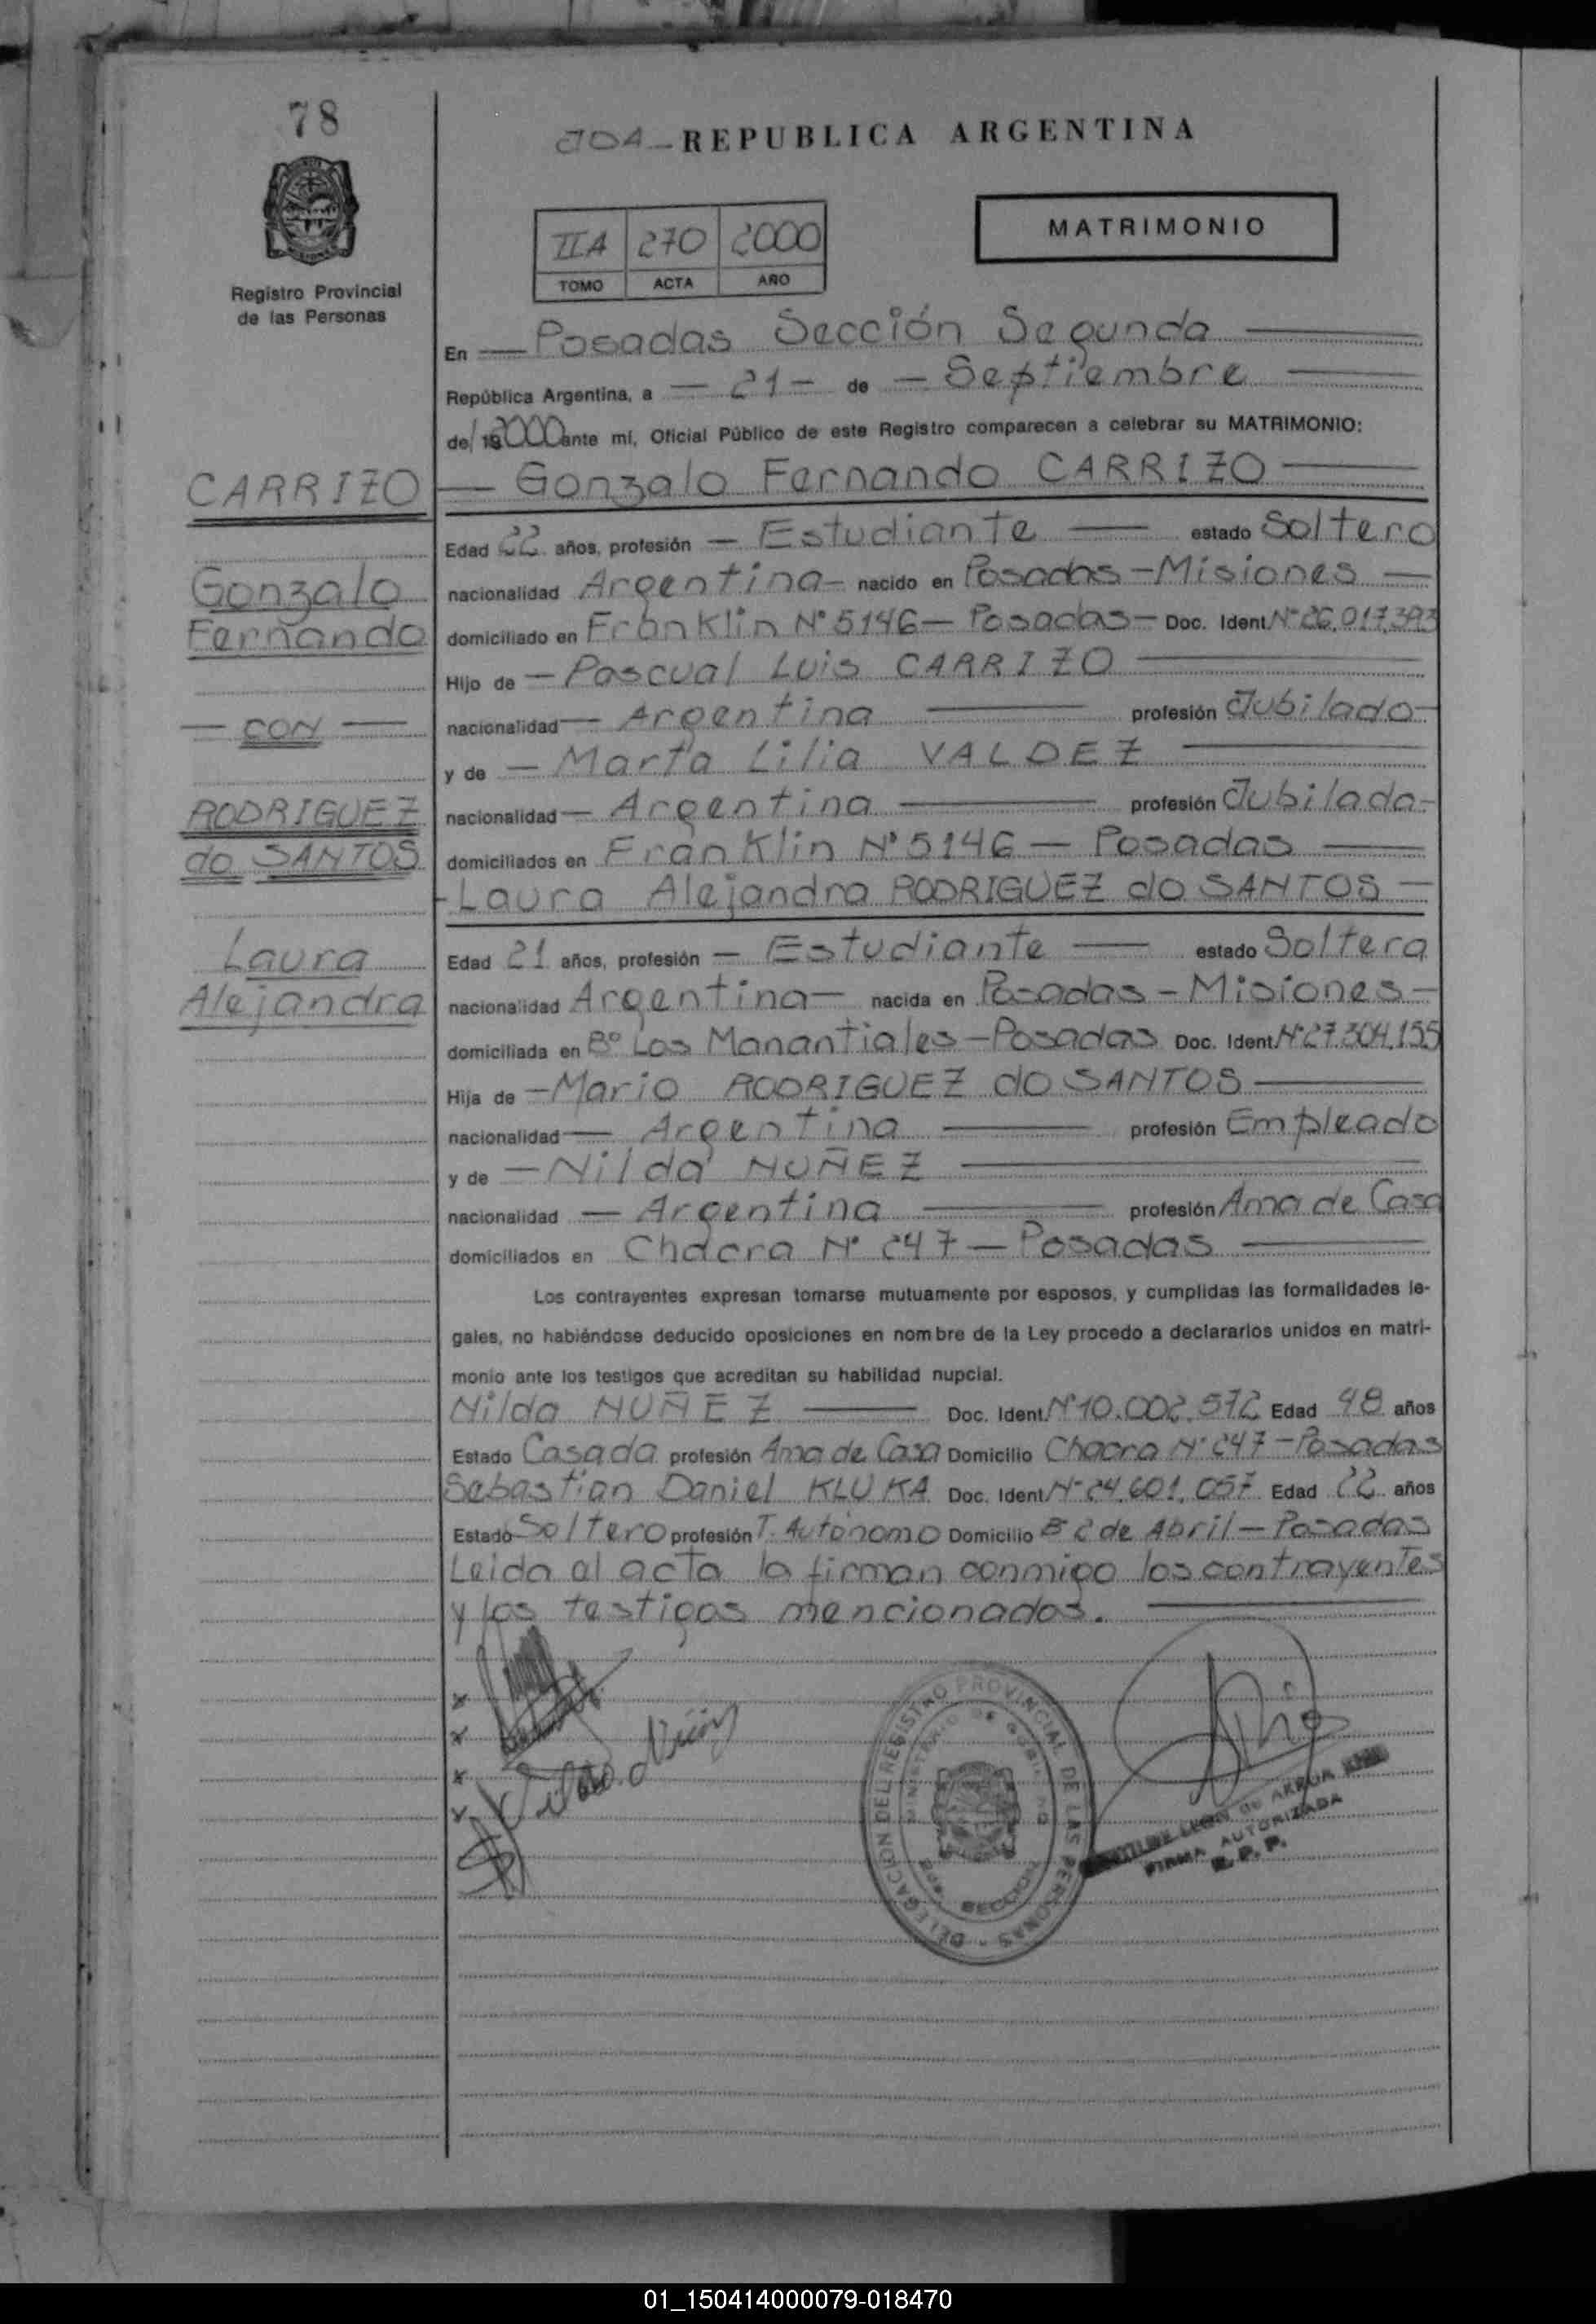 78
JOA - REPUBLICA ARGENTINA
MATRIMONIO
IIA 270 2000
TOMO ACTA AÑO
Registro Provincial
de las Personas
En — Posadas Sección Segunda —
República Argentina, a — 21 — de — Septiembre —
de/ 192000 ante mí, Oficial Público de este Registro comparecen a celebrar su MATRIMONIO:
CARRIZO
— Gonzalo Fernando CARRIZO —
Edad 22 años, profesión — Estudiante — estado Soltero
Gonzalo
nacionalidad Argentina — nacido en Posadas - Misiones —
Fernando
domiciliado en Franklin N° 5146 — Posadas — Doc. Ident. N° 26.017.393
Hijo de — Pascual Luis CARRIZO —
— CON —
nacionalidad — Argentina — profesión Jubilado —
y de — Marta Lilia VALDEZ —
RODRIGUEZ
nacionalidad — Argentina — profesión Jubilada —
do SANTOS
domiciliados en Franklin N° 5146 — Posadas —
- Laura Alejandra RODRIGUEZ do SANTOS —
Laura
Edad 21 años, profesión — Estudiante — estado Soltera
Alejandra
nacionalidad Argentina — nacida en Posadas - Misiones —
domiciliada en B° Los Manantiales - Posadas Doc. Ident. N° 27.304.155
Hija de — Mario RODRIGUEZ do SANTOS —
nacionalidad — Argentina — profesión Empleado
y de — Nilda NUÑEZ —
nacionalidad — Argentina — profesión Ama de Casa
domiciliados en Chacra N° 247 — Posadas —
Los contrayentes expresan tomarse mutuamente por esposos, y cumplidas las formalidades le-
gales, no habiéndose deducido oposiciones en nombre de la Ley procedo a declararlos unidos en matri-
monio ante los testigos que acreditan su habilidad nupcial.
Nilda NUÑEZ — Doc. Ident. N° 10.002.572 Edad 48 años
Estado Casada profesión Ama de Casa Domicilio Chacra N° 247 - Posadas
Sebastian Daniel KLUKA Doc. Ident. N° 24.601.057 Edad 22 años
Estado Soltero profesión T. Autónomo Domicilio B° 2 de Abril — Posadas
Leida al acta la firman conmigo los contrayentes
y los testigos mencionados. —
DELEGACION DEL REGISTRO PROVINCIAL DE LAS PERSONAS
SECCION
FIRMA AUTORIZADA
R. P. P.
01_150414000079-018470